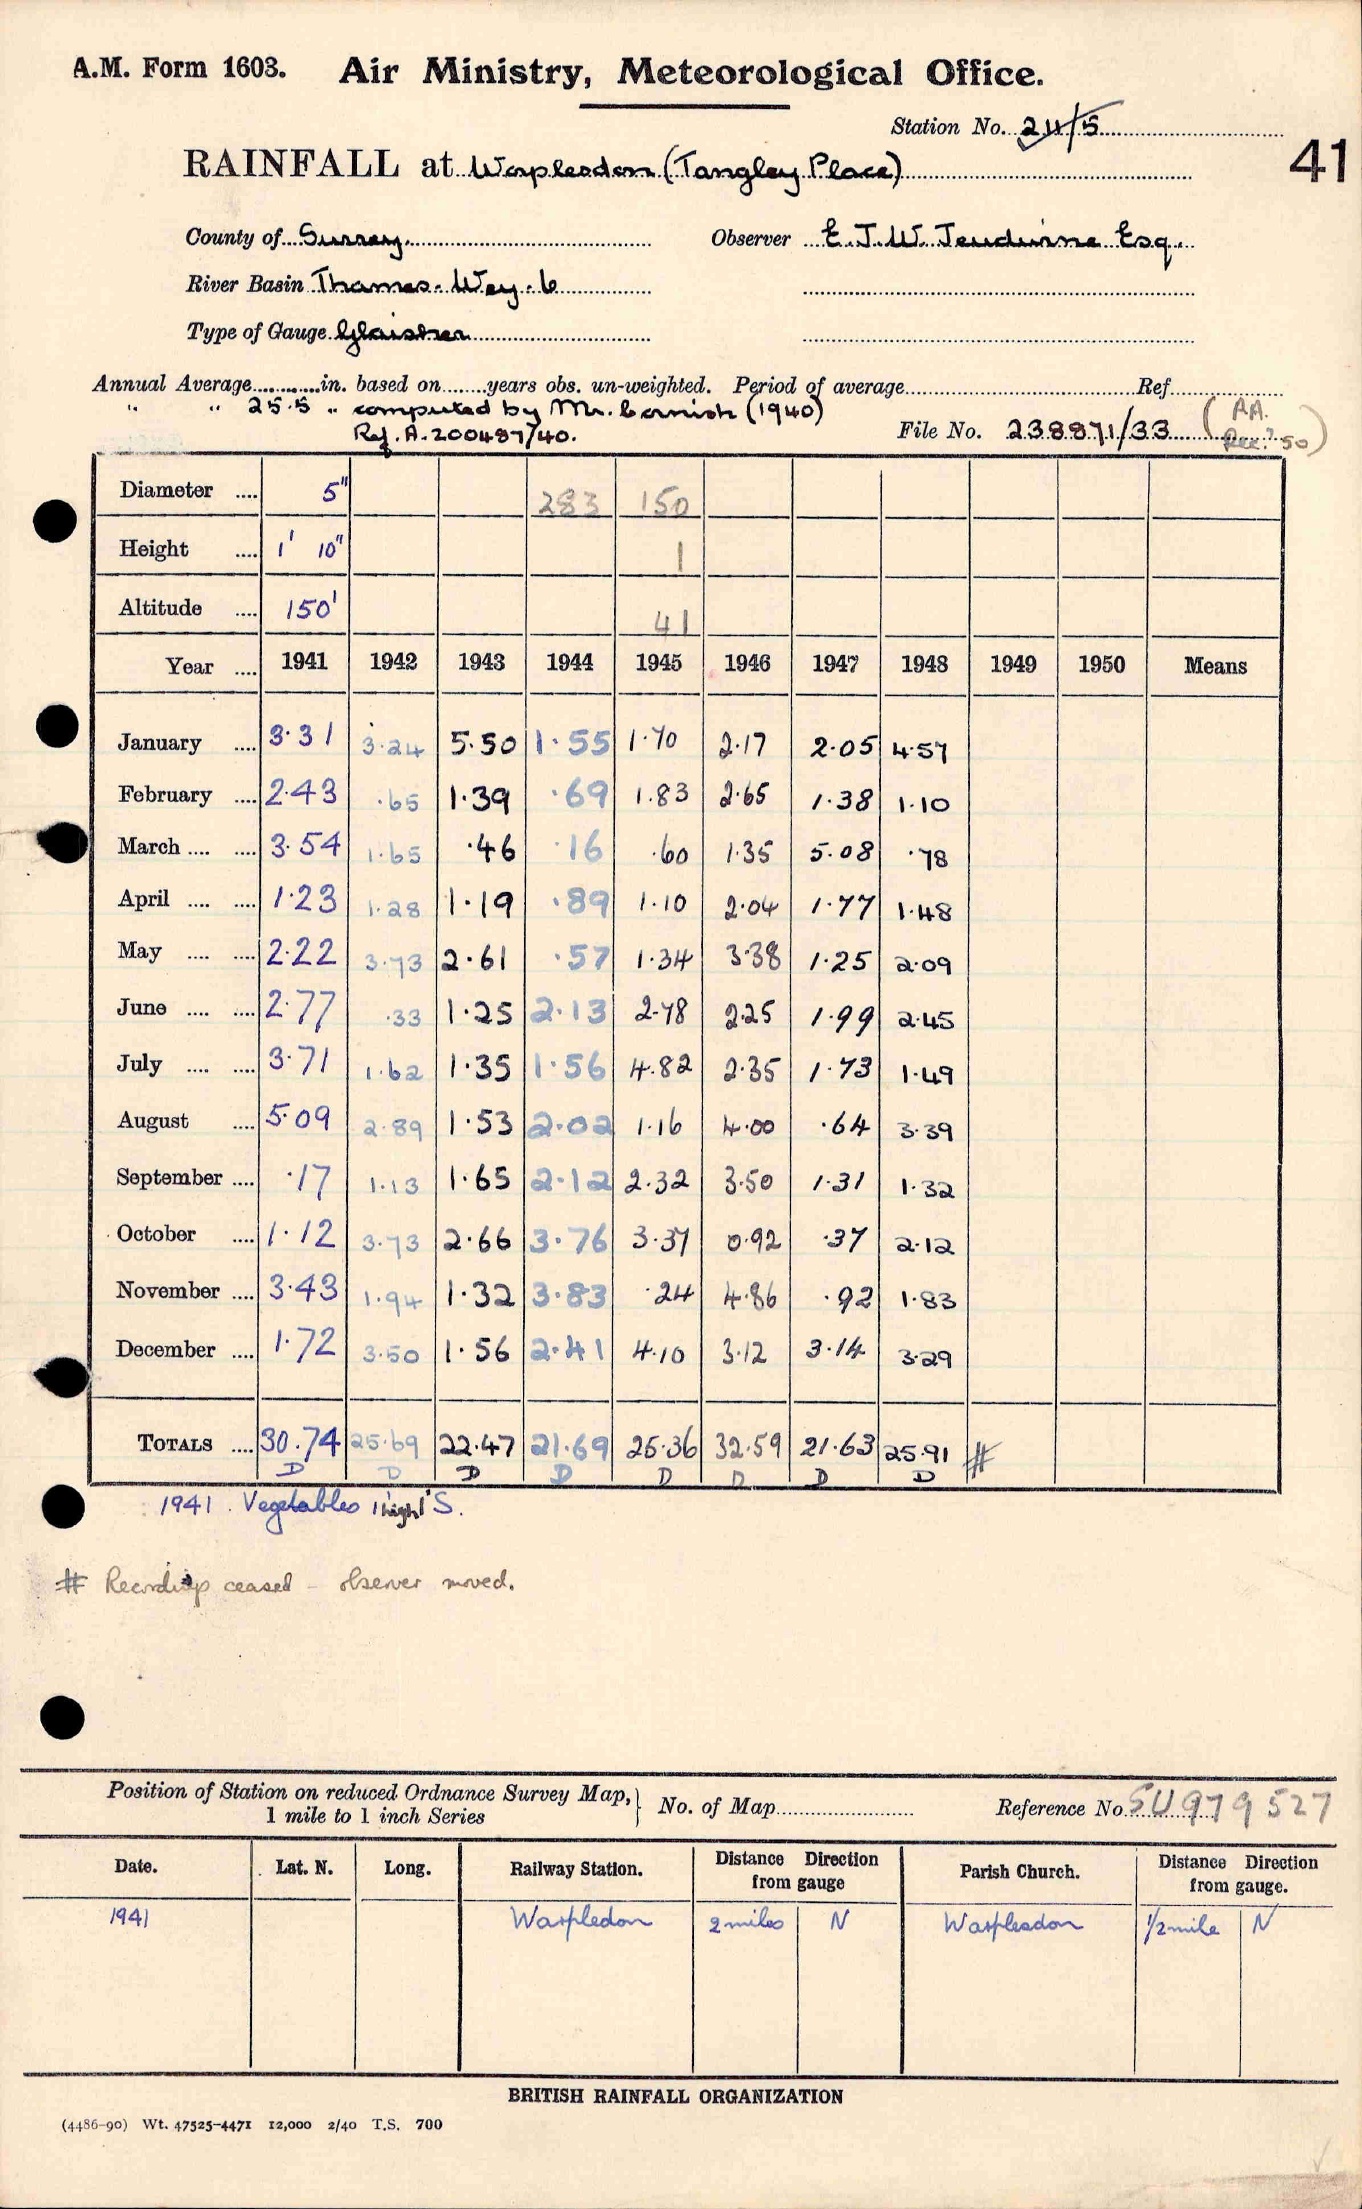 A.M. Form 1603. Air Ministry, Meteorological Office.
Station No. 24/5
41
RAINFALL at Worplesdon (Tangley Place)
County of Surrey. Observer E.J.W. Jeudwine Esq.
River Basin Thames. Wey. 6
Type of Gauge Glaisher
Annual Average............in. based on........years obs. un-weighted. Period of average.............. Ref..............
" " 25.5 " computed by Mr. Cornish (1940)
Ref. A. 200487/40. File No. 238871/33 (AA. Rec? 50)
Diameter .... 5" 283 150
Height .... 1' 10" 1
Altitude .... 150' 41
Year .... 1941 1942 1943 1944 1945 1946 1947 1948 1949 1950 Means
January .... 3.31 3.24 5.50 1.55 1.70 2.17 2.05 4.57
February .... 2.43 .65 1.39 .69 1.83 2.65 1.38 1.10
March .... .... 3.54 1.65 .46 .16 .60 1.35 5.08 .78
April .... .... 1.23 1.28 1.19 .89 1.10 2.04 1.77 1.48
May .... .... 2.22 3.73 2.61 .57 1.34 3.38 1.25 2.09
June .... .... 2.77 .33 1.25 2.13 2.78 2.25 1.99 2.45
July .... .... 3.71 1.62 1.35 1.56 4.82 2.35 1.73 1.49
August .... 5.09 2.89 1.53 2.02 1.16 4.00 .64 3.39
September .... .17 1.13 1.65 2.12 2.32 3.50 1.31 1.32
October .... 1.12 3.73 2.66 3.76 3.37 0.92 .37 2.12
November .... 3.43 1.94 1.32 3.83 .24 4.86 .92 1.83
December .... 1.72 3.50 1.56 2.41 4.10 3.12 3.14 3.29
TOTALS .... 30.74 25.69 22.47 21.69 25.36 32.59 21.63 25.91 #
D D D D D D D D
1941. Vegetables 1' high 'S.
# Recording ceased - observer moved.
Position of Station on reduced Ordnance Survey Map, 1 mile to 1 inch Series } No. of Map.............. Reference No SU 979 527
Date. Lat. N. Long. Railway Station. Distance Direction from gauge Parish Church. Distance Direction from gauge.
1941 Worplesdon 2 miles N Worplesdon 1/2 mile N
BRITISH RAINFALL ORGANIZATION
(4486-90) Wt. 47525-4471 12,000 2/40 T.S. 700